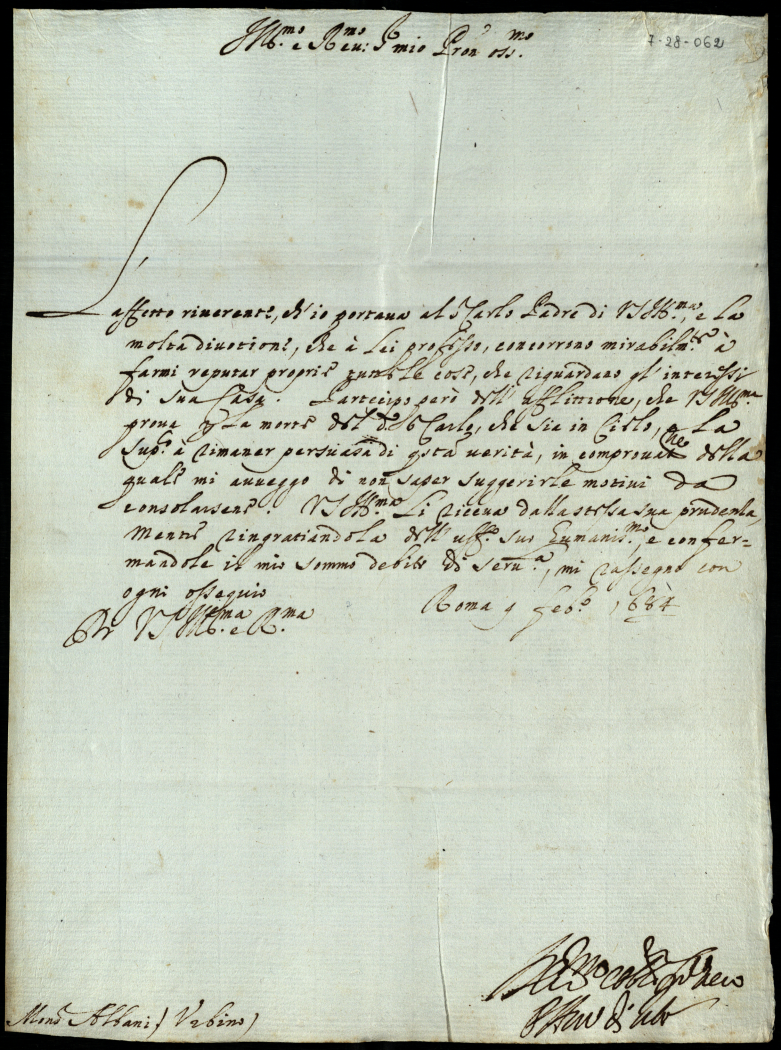 Ill.mo e Reu: S mio Pron oss.mo
7-28-062
L'affetto riuerente, ch'io portaua al S Carlo Padre di VS Ill.ma, e la
molta diuotione, che à lei professo, concorrono mirabilm.te à
farmi reputar proprie tutte le cose, che riguardano gl'interessi
di sua Casa. Partecipo però dell'afflittione, che VS Ill.ma
proua p la morte del d.o S Carlo, che sia in Cielo, e la
sup.co à rimaner persuasa di qsta verità, in comprouat.ne della
quale mi auueggo di non saper suggerirle motiui da
consolarsene. VS Ill.ma li riceua dalla stessa sua prudenza,
mentre ringratiandola dell'uff.o suo humanis.mo, e confer-
mandole il mio sommo debito di seru.a, mi rassegno con
ogni ossequio
Di VS Ill.ma e R.ma
Roma 9 feb.o 1684
Mons Albani) Vrbino)